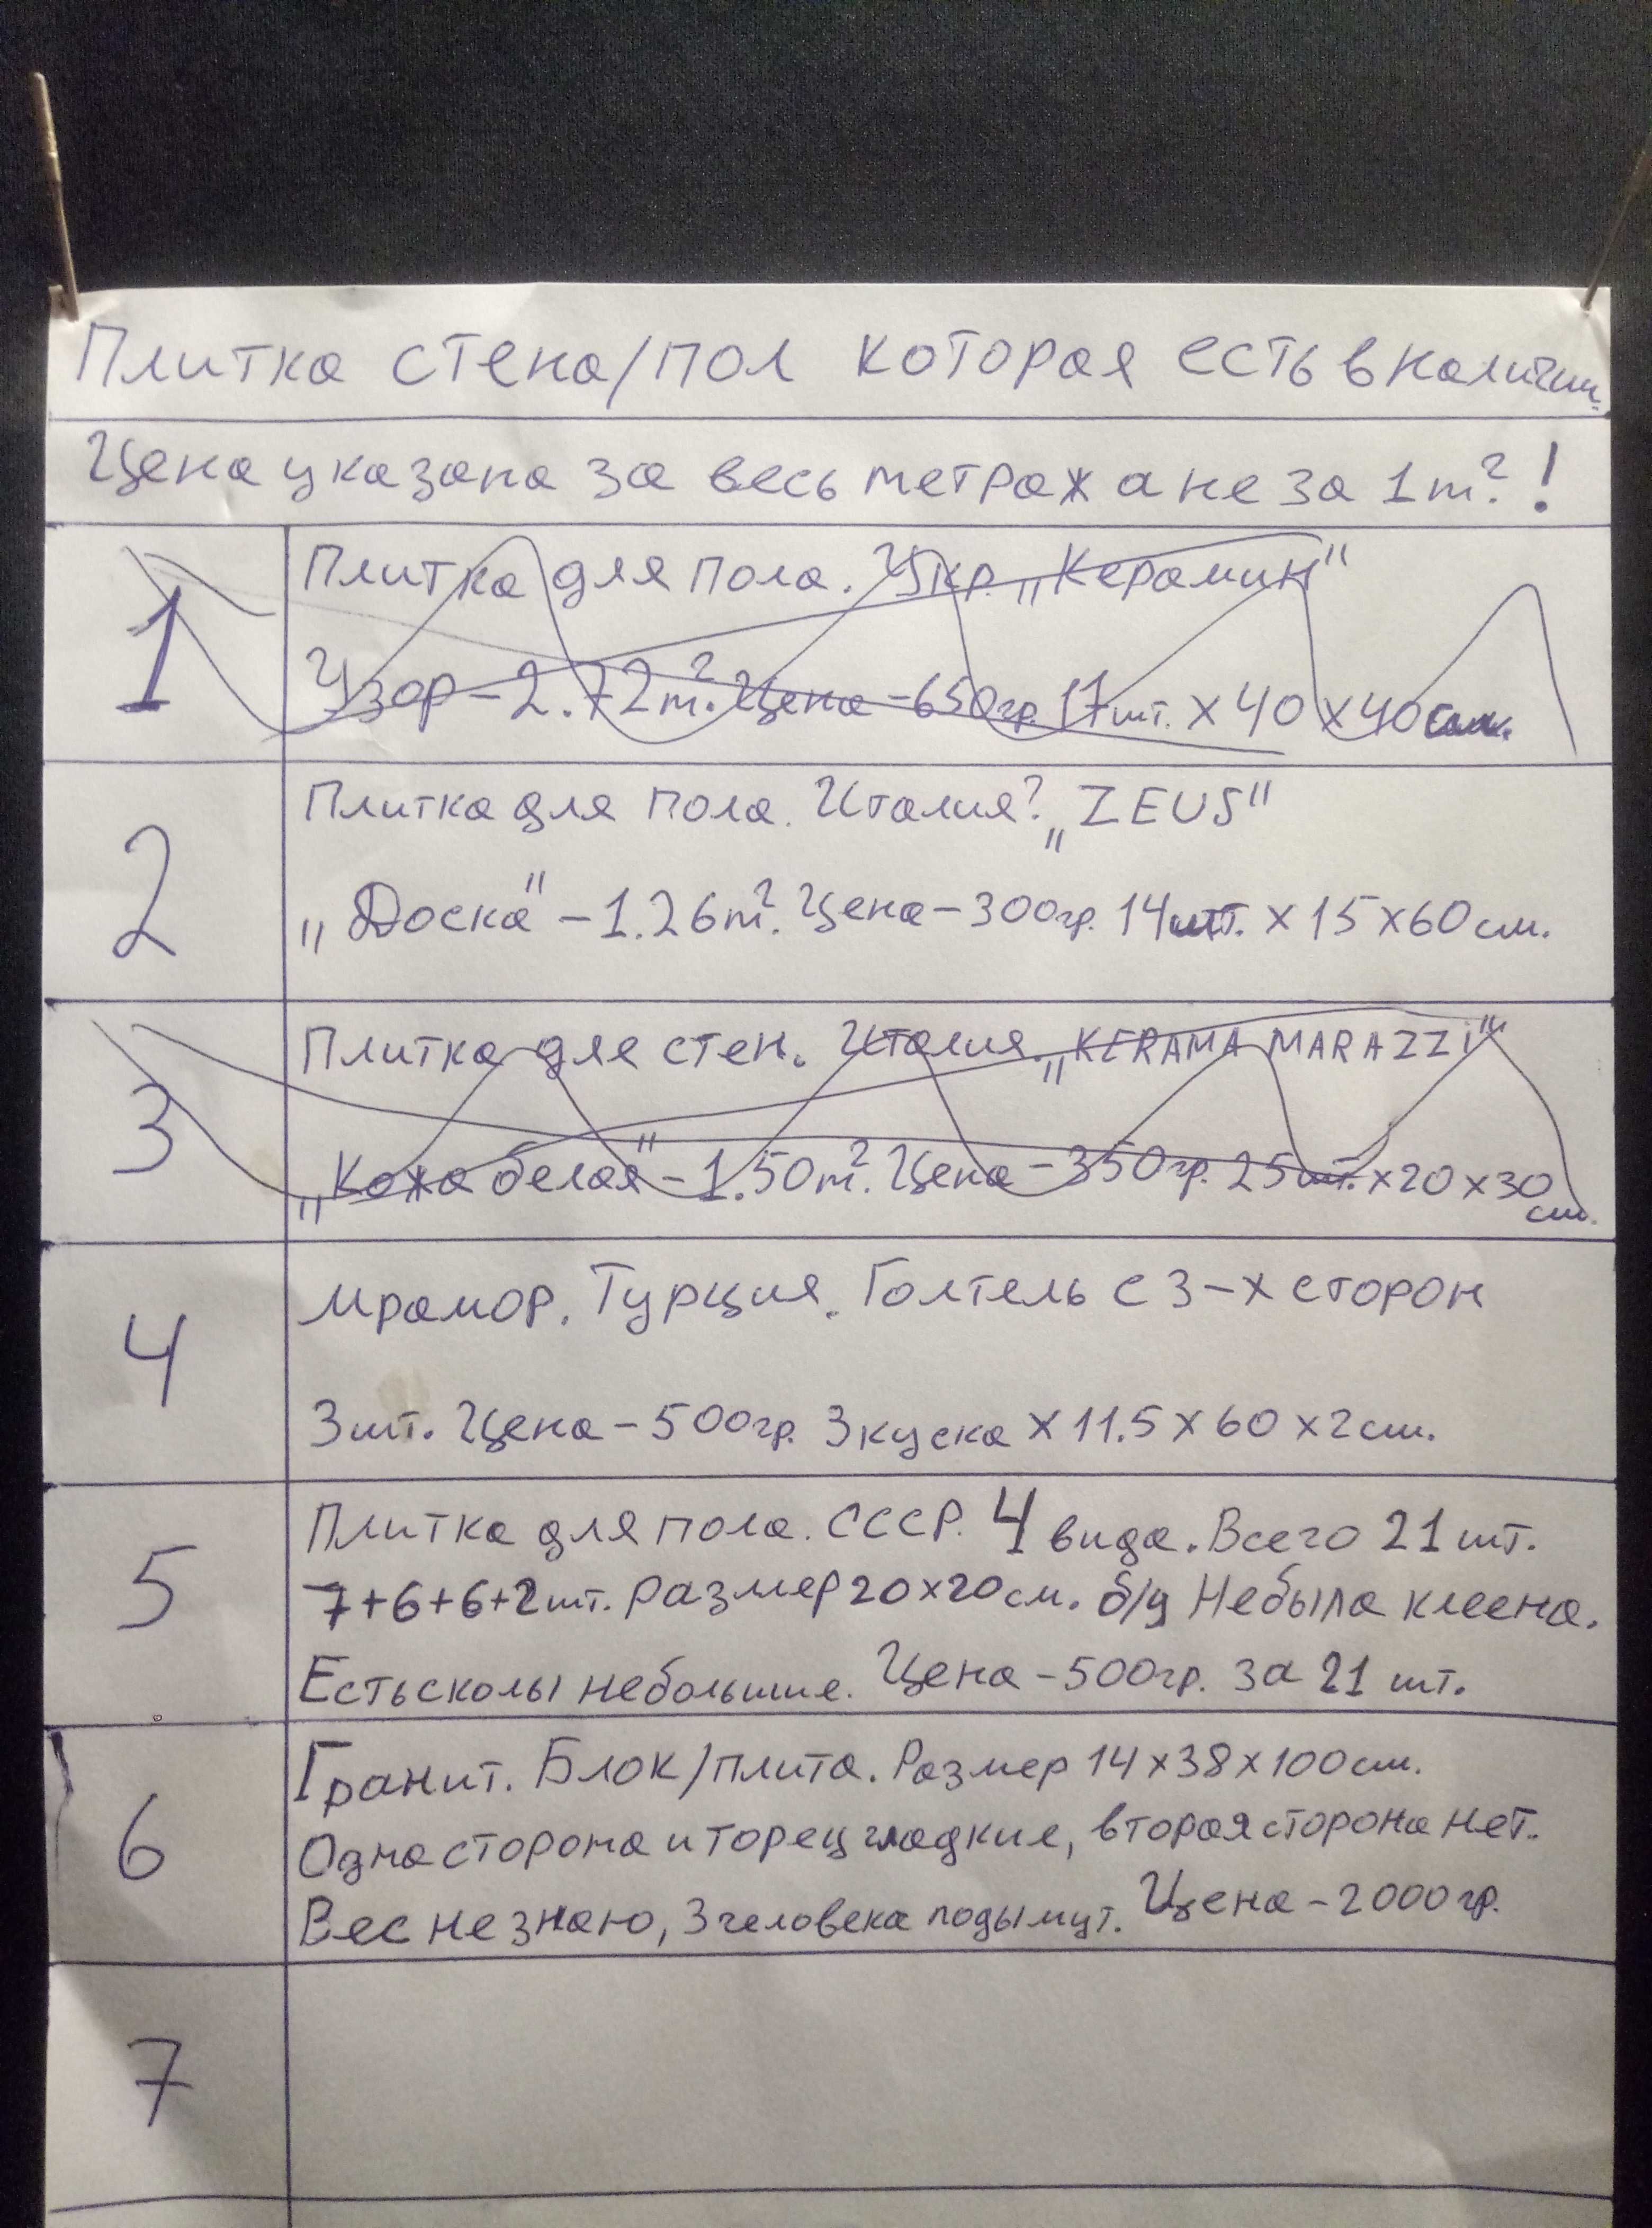 Плитка стена/пол которая есть в наличии.
Цена указана за весь метраж а не за 1m²!
1
Плитка для пола. Укр. „Керамин"
Узор - 2.72m². Цена - 650гр. 17шт. x 40 x 40см.
2
Плитка для пола. Италия? „ZEUS"
„Доска" - 1.26m². Цена - 300гр. 14шт. x 15 x 60см.
3
Плитка для стен. Италия. „KERAMA MARAZZI"
„Кожа белая" - 1.50m². Цена - 350гр. 25шт. x 20 x 30
см.
4
Мрамор. Турция. Голтель с 3-х сторон
3шт. Цена - 500гр. 3 куска x 11.5 x 60 x 2см.
5
Плитка для пола. СССР. 4 вида. Всего 21 шт.
7+6+6+2шт. размер 20x20см. б/у Небыла клеена.
Есть сколы небольшие. Цена - 500гр. за 21 шт.
6
Гранит. Блок/плита. Размер 14x38x100см.
Одна сторона и торец гладкие, вторая сторона нет.
Вес не знаю, 3 человека подымут. Цена - 2000гр.
7